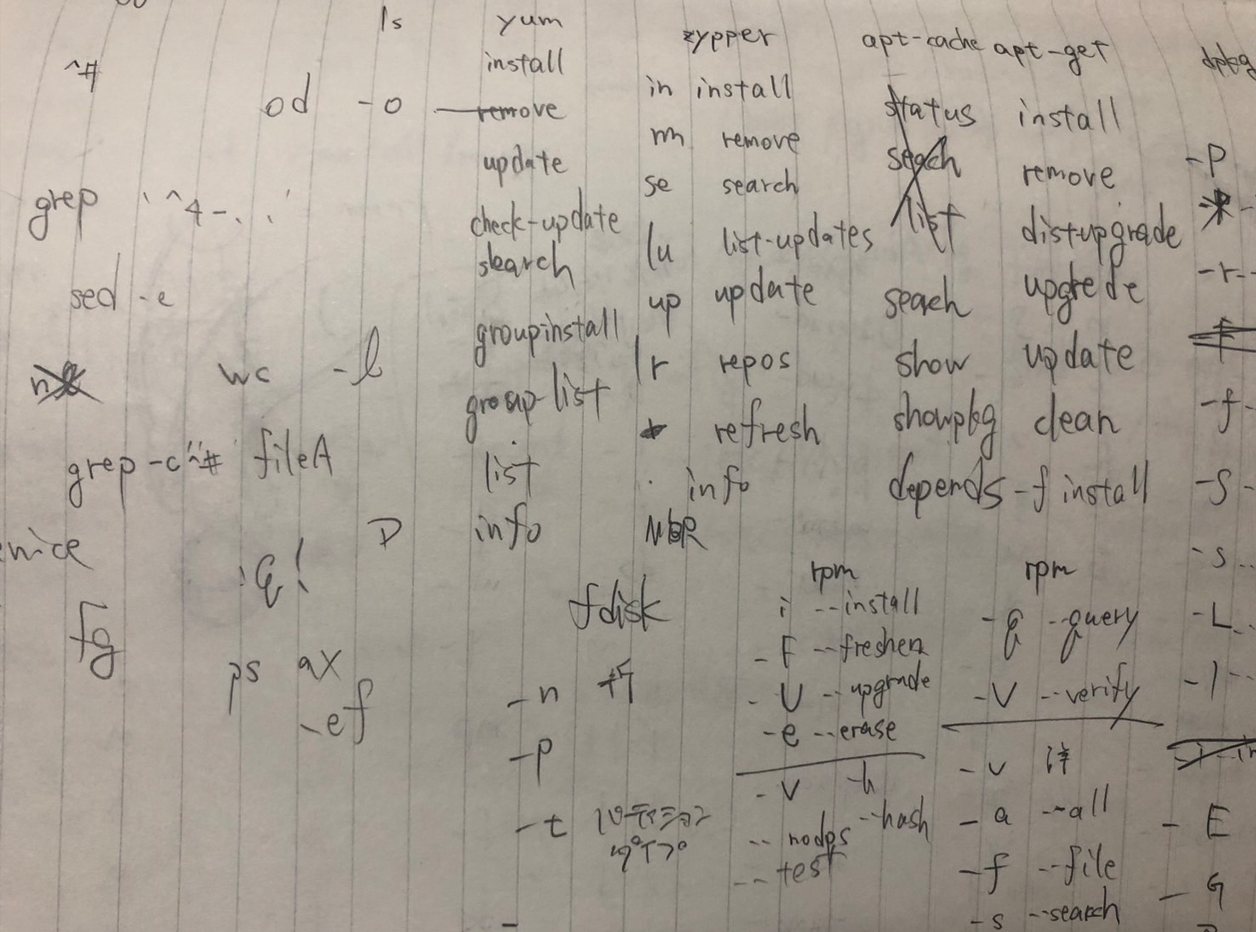 ls
^#
od -o
grep '^4-..'
sed -e
wc -l
grep -c "^# fileA
nice
D
:q!
fg
ps ax
-ef
yum
install
remove
update
check-update
search
groupinstall
group list
list
info
zypper
in install
rm remove
se search
lu list-updates
up update
lr repos
refresh
info
MBR
apt-cache
status
seach
list
seach
show
showpkg
depends
apt-get
install
remove
dist-upgrade
upgrede
update
clean
-f install
dpkg
-P
-r
-f
-S
-s
-L
-l
-E
-G
fdisk
-n
-p
-t パーティション
タイプ
rpm
i --install
-F --freshen
-U --upgrade
-e --erase
-v -h
--hash
--nodps
--test
rpm
-q --query
-V --verify
-v 詳
-a --all
-f --file
-s --search